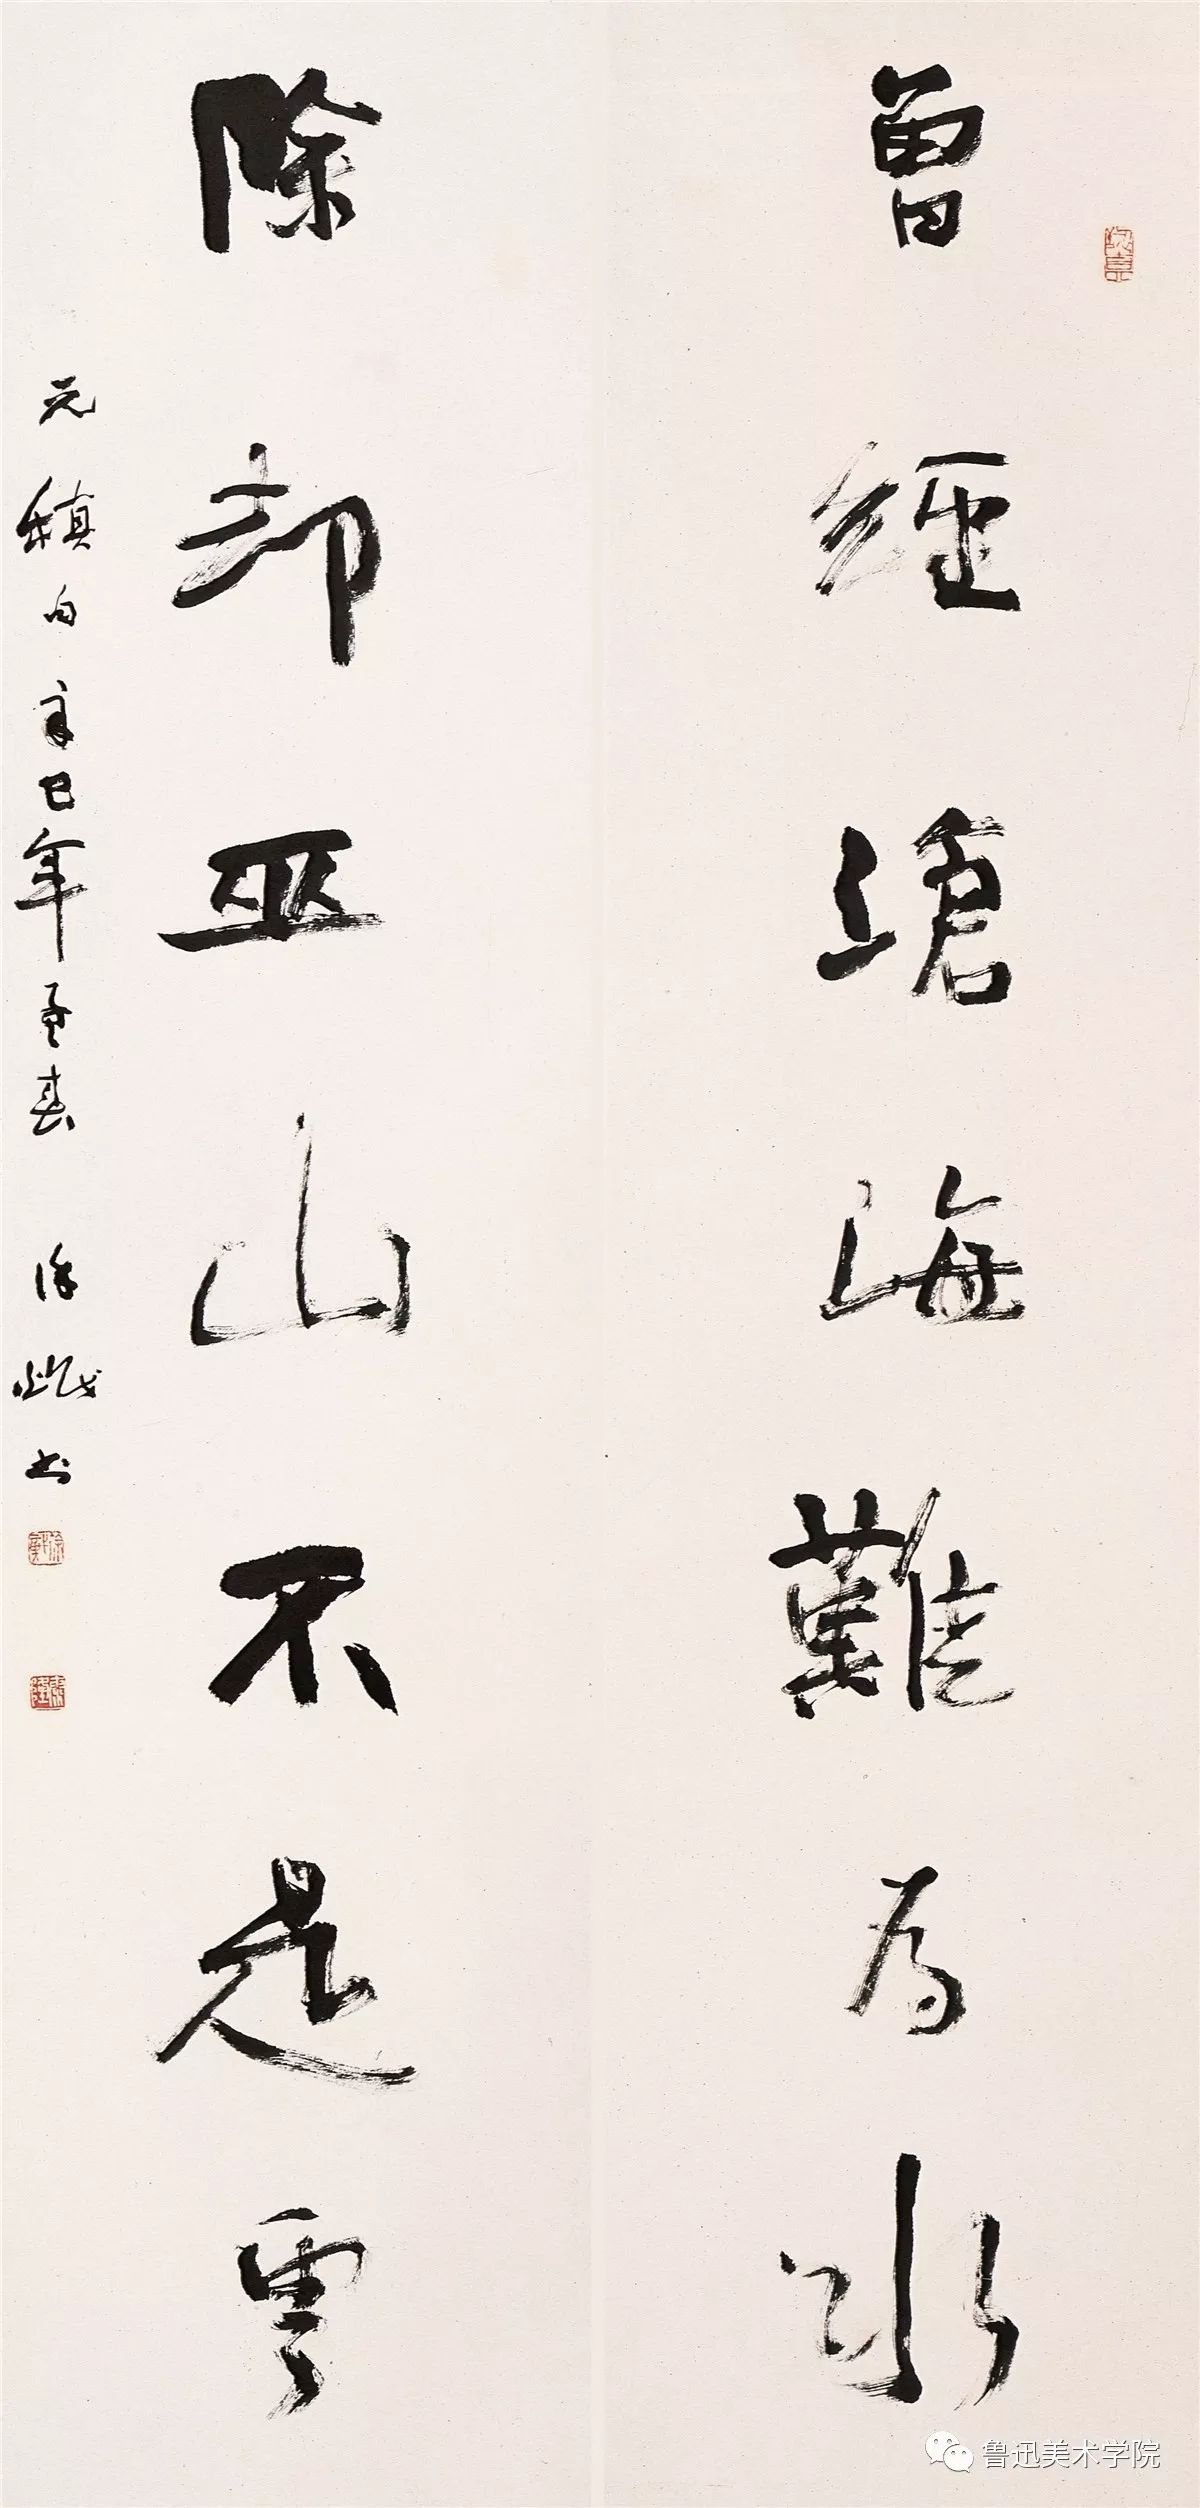 曾經滄海難為水
除却巫山不是雲
元稹句 辛巳年孟春 徐熾书
鲁迅美术学院